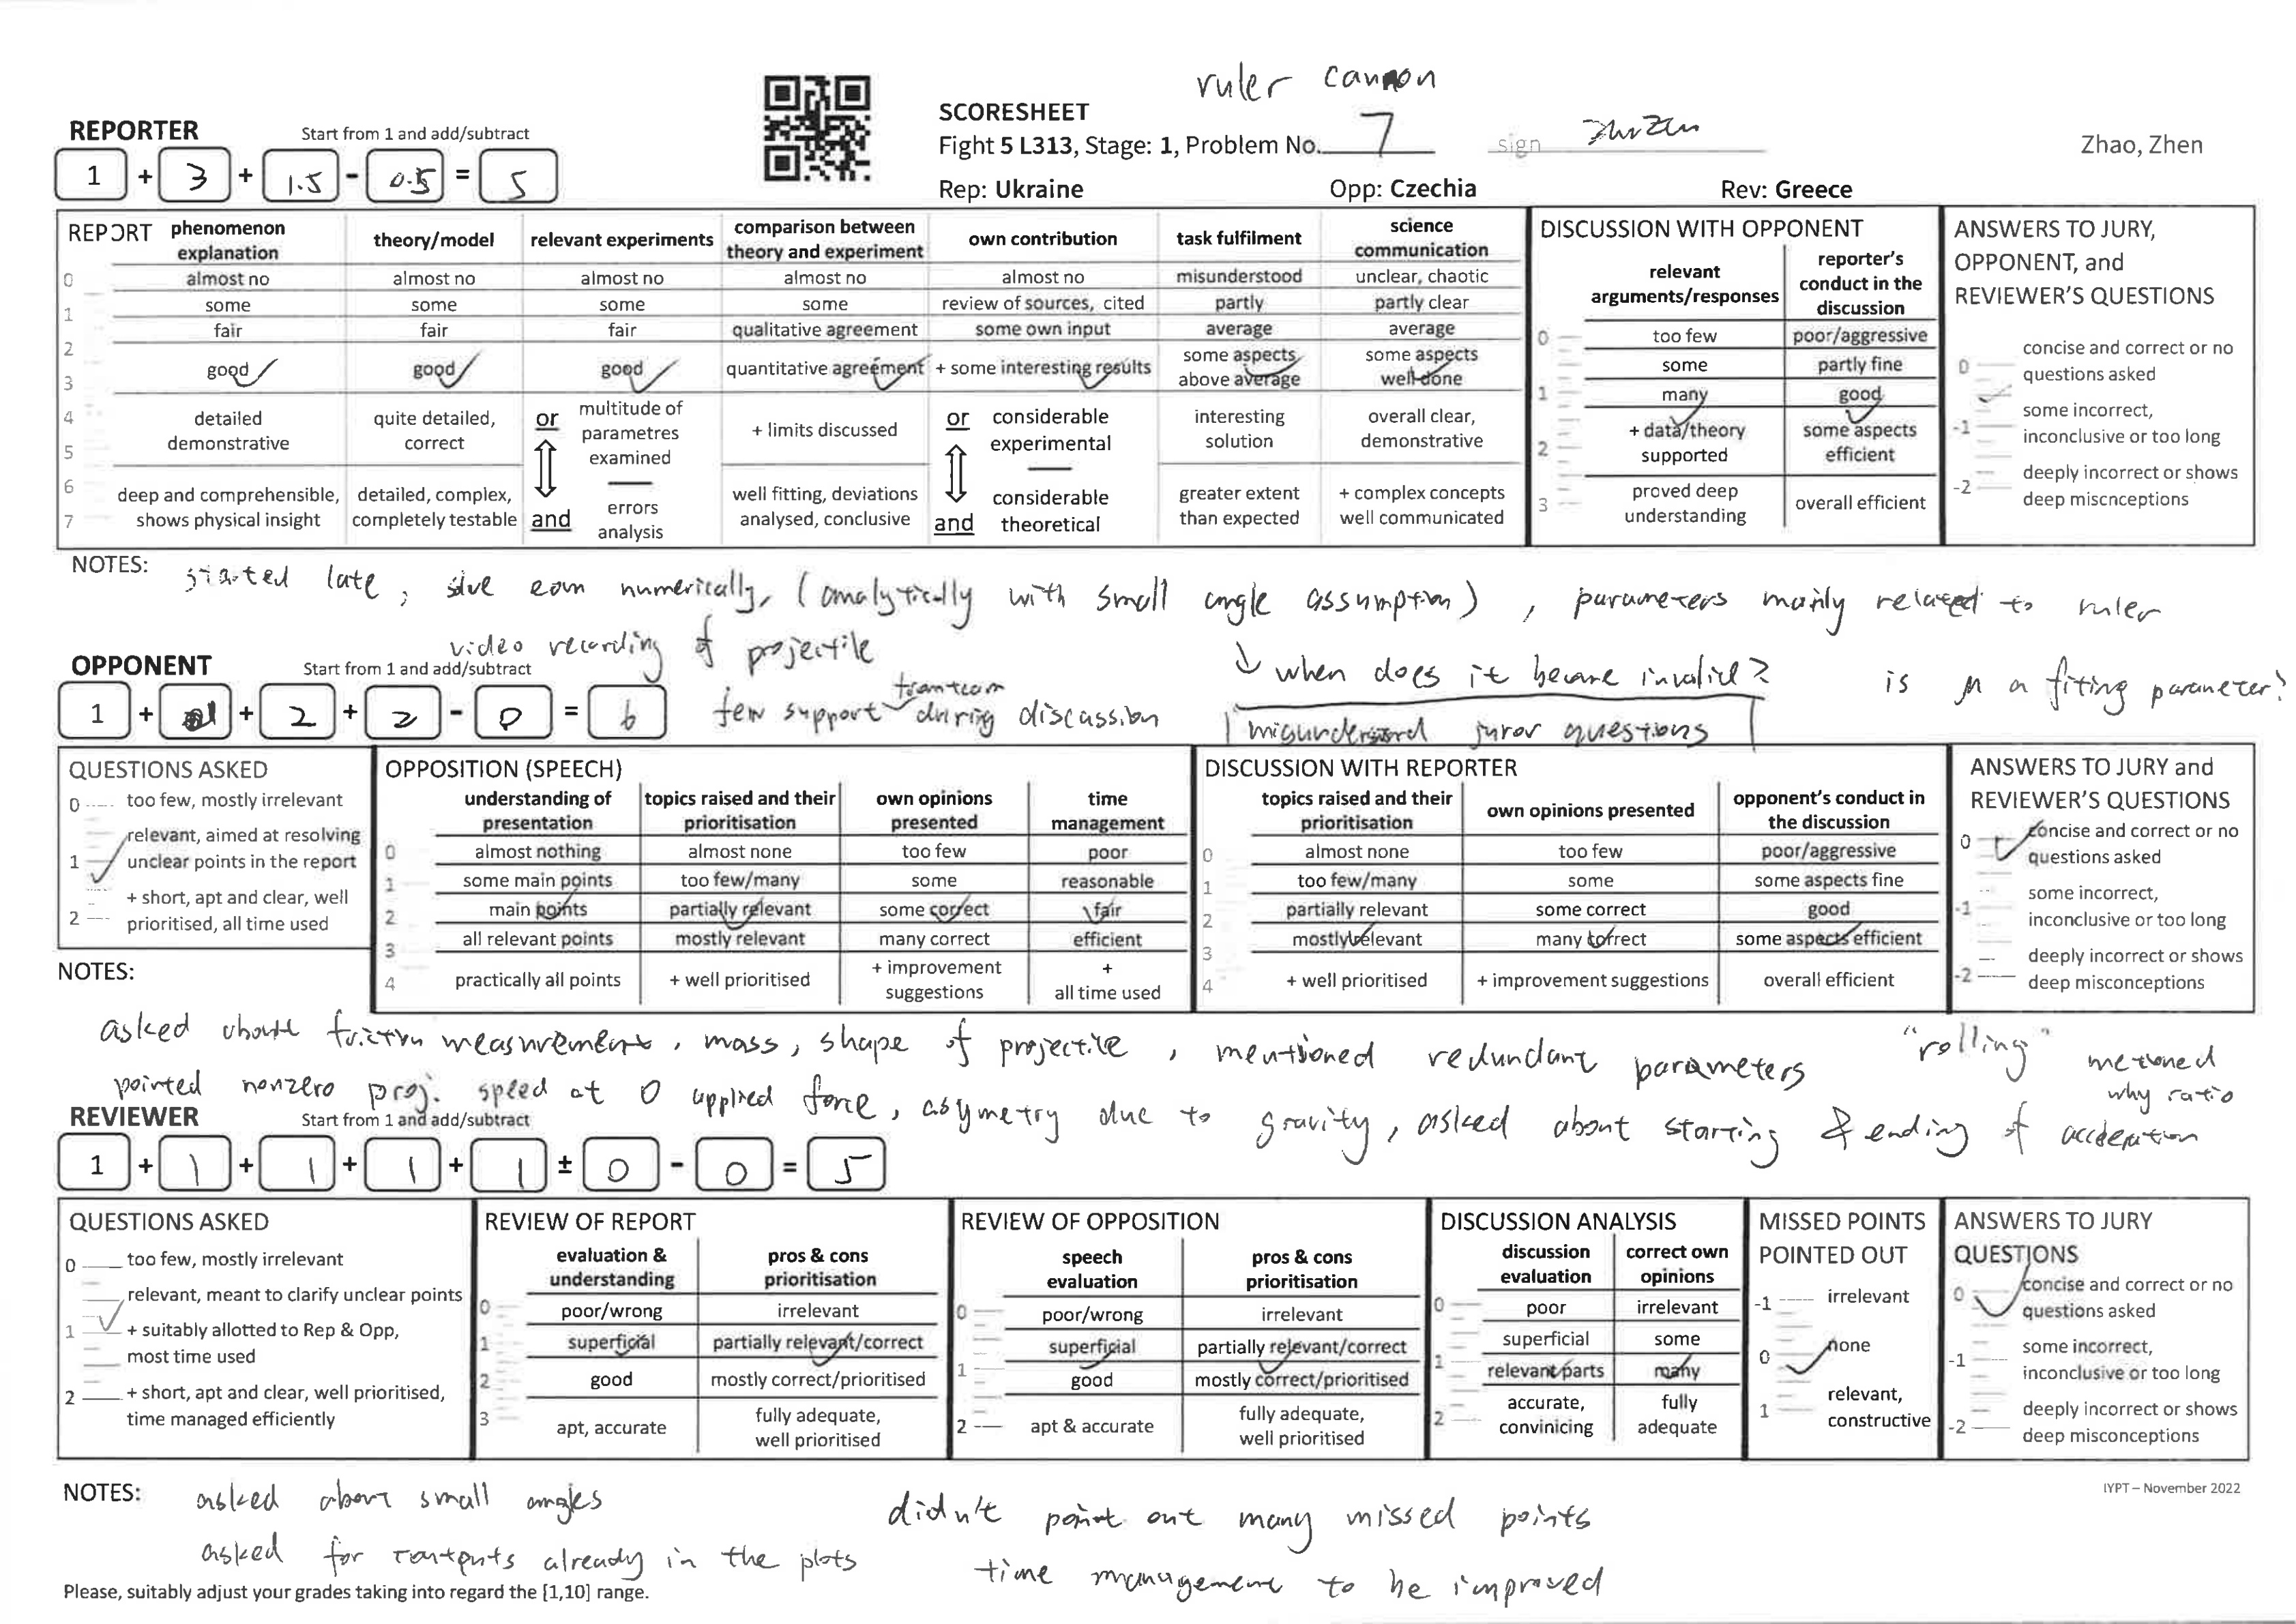 ruler cannon
SCORESHEET
REPORTER Start from 1 and add/subtract
Fight 5 L313, Stage: 1, Problem No. 7 sign Zhao, Zhen
1 + 3 + 1.5 - 0.5 = 5
Rep: Ukraine Opp: Czechia Rev: Greece
REPORT
phenomenon explanation
theory/model
relevant experiments
comparison between theory and experiment
own contribution
task fulfilment
science communication
0
1
2
3
4
5
6
7
almost no almost no almost no almost no almost no misunderstood unclear, chaotic
some some some some review of sources, cited partly partly clear
fair fair fair qualitative agreement some own input average average
good good good quantitative agreement + some interesting results some aspects above average some aspects well done
detailed demonstrative
quite detailed, correct
or
multitude of parametres examined
+ limits discussed
or
considerable experimental
interesting solution
overall clear, demonstrative
deep and comprehensible, shows physical insight
detailed, complex, completely testable
and
errors analysis
well fitting, deviations analysed, conclusive
and
considerable theoretical
greater extent than expected
+ complex concepts well communicated
DISCUSSION WITH OPPONENT
relevant arguments/responses
reporter's conduct in the discussion
0
1
2
3
too few poor/aggressive
some partly fine
many good
+ data/theory supported
some aspects efficient
proved deep understanding
overall efficient
ANSWERS TO JURY, OPPONENT, and REVIEWER'S QUESTIONS
0
concise and correct or no questions asked
-1
some incorrect, inconclusive or too long
-2
deeply incorrect or shows deep miscnceptions
NOTES: started late, solve eom numerically, (analytically with small angle assumption), parameters mainly related to ruler
video recording of projectile
↓ when does it become invalid? is μ a fiting parameter?
few support from team during discussion
misunderstood juror questions
OPPONENT Start from 1 and add/subtract
1 + 1 + 2 + 2 - 0 = 6
QUESTIONS ASKED
0 too few, mostly irrelevant
relevant, aimed at resolving
1 unclear points in the report
+ short, apt and clear, well
2 prioritised, all time used
OPPOSITION (SPEECH)
understanding of presentation
topics raised and their prioritisation
own opinions presented
time management
0
1
2
3
4
almost nothing almost none too few poor
some main points too few/many some reasonable
main points partially relevant some correct fair
all relevant points mostly relevant many correct efficient
practically all points + well prioritised + improvement suggestions + all time used
DISCUSSION WITH REPORTER
topics raised and their prioritisation
own opinions presented
opponent's conduct in the discussion
0
1
2
3
4
almost none too few poor/aggressive
too few/many some some aspects fine
partially relevant some correct good
mostly relevant many correct some aspects efficient
+ well prioritised + improvement suggestions overall efficient
ANSWERS TO JURY and REVIEWER'S QUESTIONS
0
concise and correct or no questions asked
-1
some incorrect, inconclusive or too long
-2
deeply incorrect or shows deep misconceptions
NOTES:
asked about friction measurements, mass, shape of projectile, mentioned redundant parameters "rolling" metioned
pointed nonzero proj. speed at 0 applied force, asymetry due to gravity, asked about starting & ending of acceleration
why ratio
REVIEWER Start from 1 and add/subtract
1 + 1 + 1 + 1 + 1 ± 0 - 0 = 5
QUESTIONS ASKED
0 too few, mostly irrelevant
relevant, meant to clarify unclear points
1 + suitably allotted to Rep & Opp,
most time used
2 + short, apt and clear, well prioritised,
time managed efficiently
REVIEW OF REPORT
evaluation & understanding
pros & cons prioritisation
0
1
2
3
poor/wrong irrelevant
superficial partially relevant/correct
good mostly correct/prioritised
apt, accurate fully adequate, well prioritised
REVIEW OF OPPOSITION
speech evaluation
pros & cons prioritisation
0
1
2
poor/wrong irrelevant
superficial partially relevant/correct
good mostly correct/prioritised
apt & accurate fully adequate, well prioritised
DISCUSSION ANALYSIS
discussion evaluation
correct own opinions
0
1
2
poor irrelevant
superficial some
relevant parts many
accurate, convinicing
fully adequate
MISSED POINTS POINTED OUT
-1 irrelevant
0 none
1 relevant, constructive
ANSWERS TO JURY QUESTIONS
0
concise and correct or no questions asked
-1
some incorrect, inconclusive or too long
-2
deeply incorrect or shows deep misconceptions
IYPT – November 2022
NOTES: asked about small angles
asked for contents already in the plots
didn't point out many missed points
time management to be improved
Please, suitably adjust your grades taking into regard the [1,10] range.